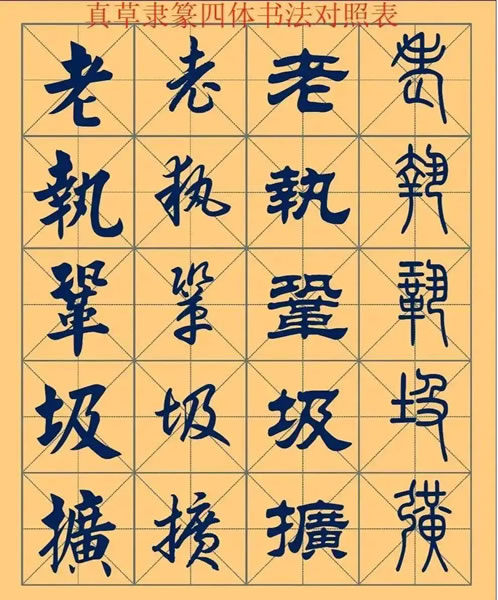 真草隶篆四体书法对照表
老老老老
執執執執
鞏鞏鞏鞏
圾圾圾圾
擴擴擴擴